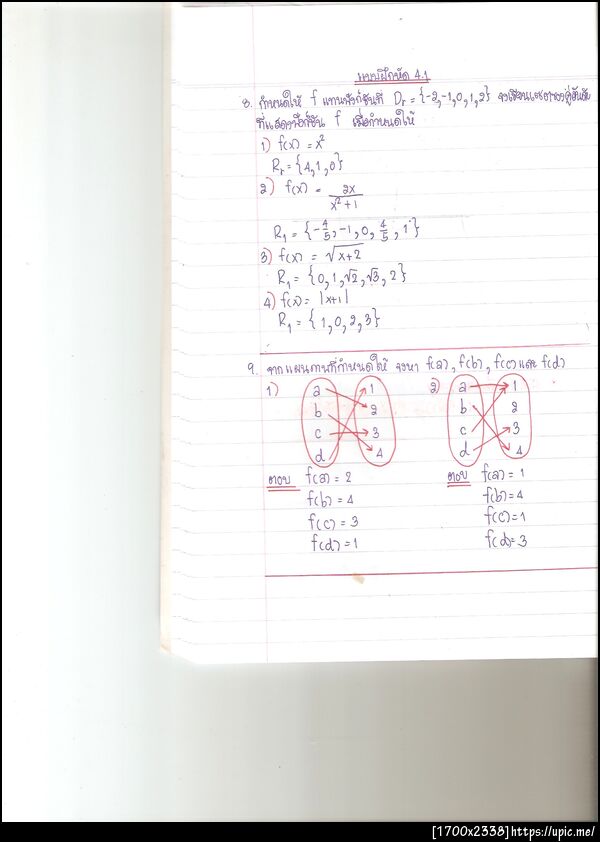 แบบฝึกหัด 4.1
8. กำหนดให้ f แทนฟังก์ชันที่ Dr = {-2,-1,0,1,2} จงเขียนเซตของคู่อันดับ
ที่แสดงฟังก์ชัน f เมื่อกำหนดให้
1) f(x) = x²
Rr = {4,1,0}
2) f(x) = 2x/x²+1
R1 = {-4/5,-1,0,4/5,1}
3) f(x) = √x+2
R1 = {0,1,√2,√3,2}
4) f(x) = |x+1|
R1 = {1,0,2,3}
9. จากแผนภาพที่กำหนดให้ จงหา f(a), f(b), f(c) และ f(d)
1) a 1
b 2
c 3
d 4
ตอบ f(a) = 2
f(b) = 4
f(c) = 3
f(d) = 1
2) a 1
b 2
c 3
d 4
ตอบ f(a) = 1
f(b) = 4
f(c) = 1
f(d) = 3
[1700x2338]https://upic.me/